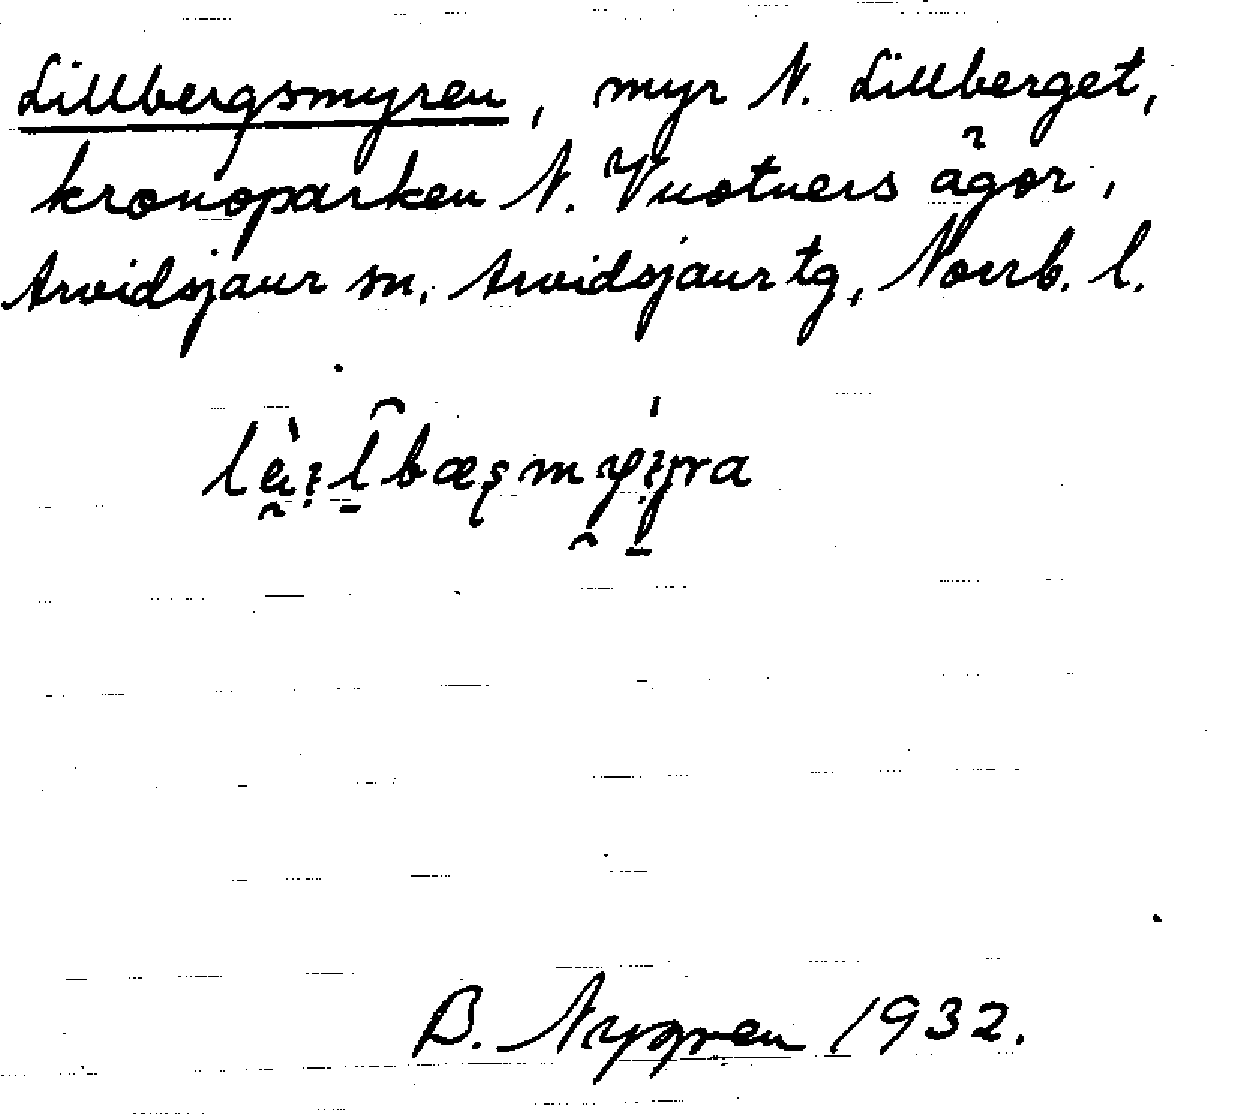 Lillbergsmyren, myr N. Lillberget,
kronoparken N. Vuotners ägor,
Arvidsjaur sn, Arvidsjaur tg, Norrb. l.
B. Nygren 1932.